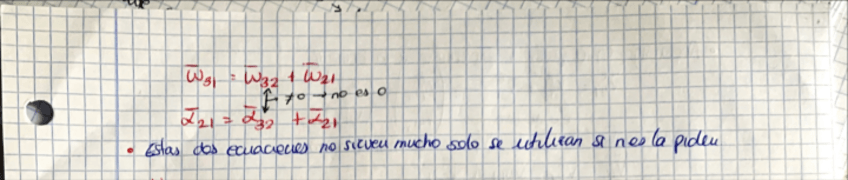 ω̄₃₁ = ω̄₃₂ + ω̄₂₁
≠0 → no es 0
ᾱ₂₁ = ᾱ₃₂ + ᾱ₂₁
• Estas dos ecuaciones no sirven mucho solo se utilizan si nos la piden